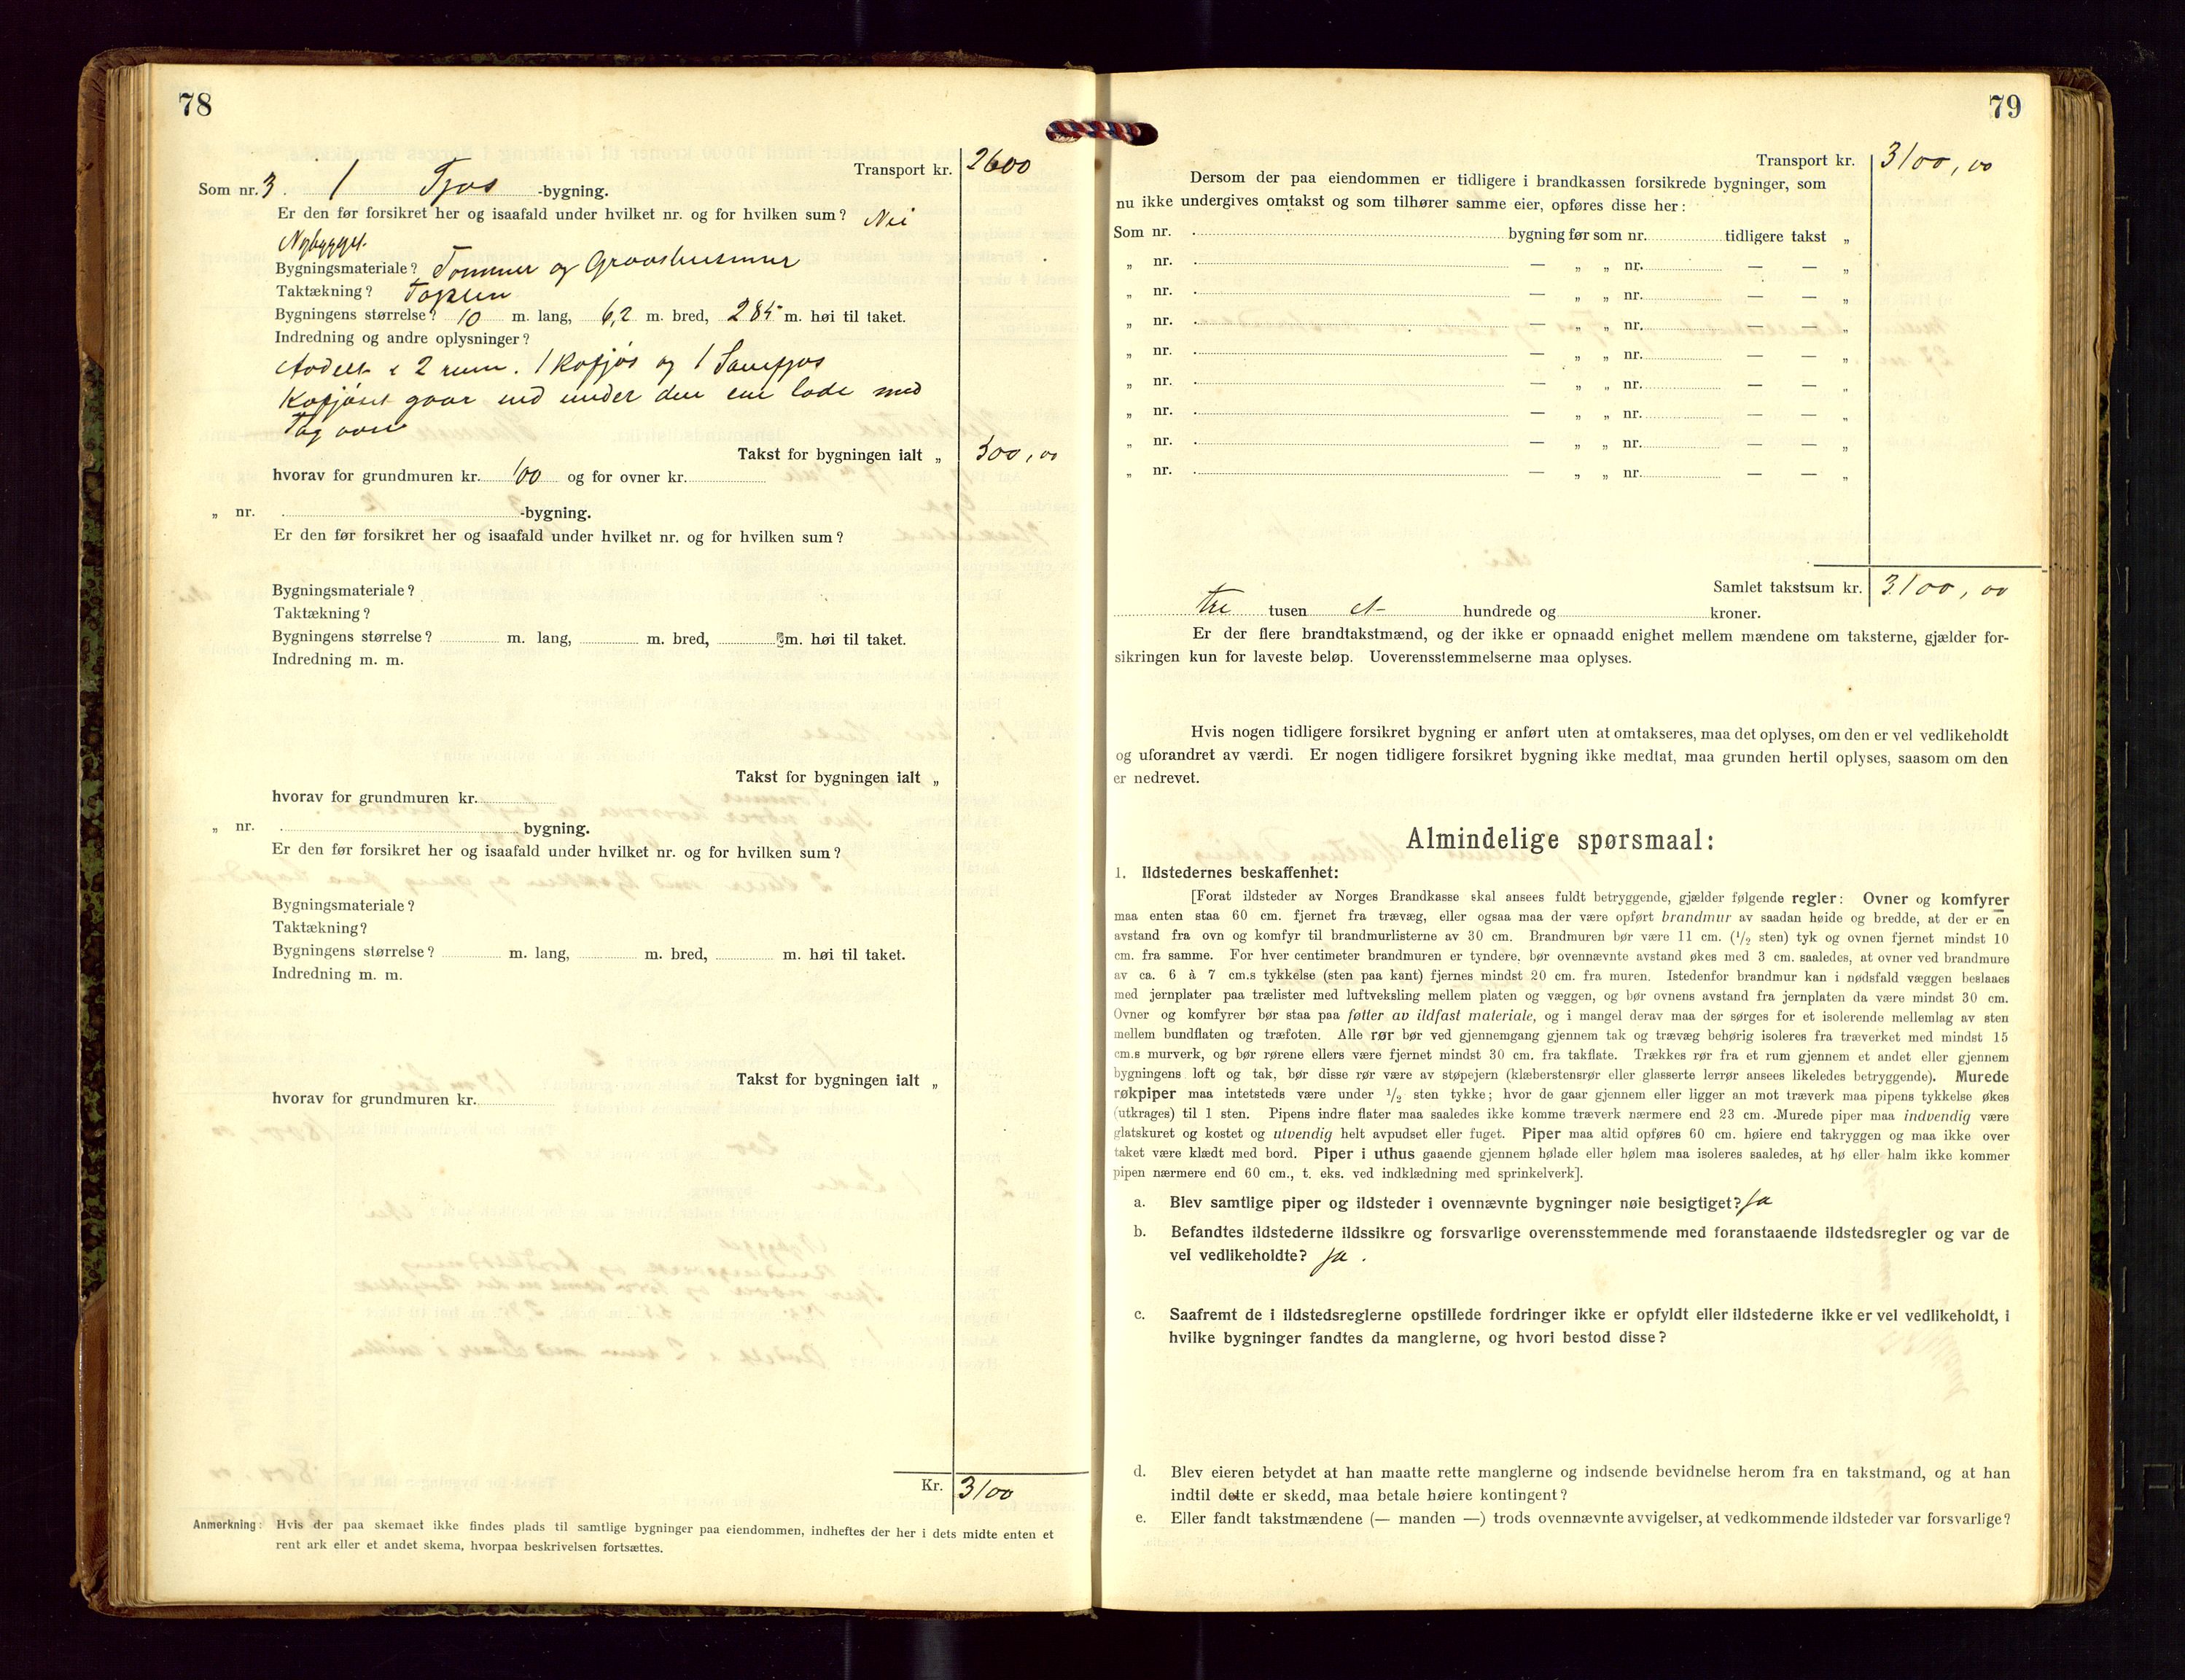 78
Transport kr. 2600
Som nr. 3. 1 Fjøs -bygning.
Er den før forsikret her og isaafald under hvilket nr. og for hvilken sum? Nei
Nybygget
Bygningsmateriale? Tømmer og Graasteinsmur
Taktækning?
Bygningens størrelse? 10 m. lang, 6,2 m. bred, 2 85 m. høi til taket.
Indredning og andre oplysninger?
Avdelt i 2 rum. 1 Kofjøs og 1 Sauefjøs
Kofjøset gaar ind under den ene lade med
Tag over
Takst for bygningen ialt „ 500,00
hvorav for grundmuren kr. 100 og for ovner kr.
„ nr. -bygning.
Er den før forsikret her og isaafald under hvilket nr. og for hvilken sum?
Bygningsmateriale?
Taktækning?
Bygningens størrelse? m. lang, m. bred, m. høi til taket.
Indredning m. m.
Takst for bygningen ialt „
hvorav for grundmuren kr.
„ nr. bygning.
Er den før forsikret her og isaafald under hvilket nr. og for hvilken sum?
Bygningsmateriale?
Taktækning?
Bygningens størrelse? m. lang, m. bred, m. høi til taket.
Indredning m. m.
Takst for bygningen ialt „
hvorav for grundmuren kr.
Kr. 3100
Anmerkning: Hvis der paa skemaet ikke findes plads til samtlige bygninger paa eiendommen, indheftes der her i dets midte enten et
rent ark eller et andet skema, hvorpaa beskrivelsen fortsættes.
79
Transport kr. 3100,00
Dersom der paa eiendommen er tidligere i brandkassen forsikrede bygninger, som
nu ikke undergives omtakst og som tilhører samme eier, opføres disse her:
Som nr. bygning før som nr. tidligere takst „
„ nr. — „ „ nr. — — „
„ nr. — „ „ nr. — — „
„ nr. — „ „ nr. — — „
„ nr. — „ „ nr. — — „
„ nr. — „ „ nr. — — „
„ nr. — „ „ nr. — — „
„ nr. — „ „ nr. — — „
„ nr. — „ „ nr. — — „
Samlet takstsum kr. 3100,00
tre tusen et hundrede og kroner.
Er der flere brandtakstmænd, og der ikke er opnaadd enighet mellem mændene om taksterne, gjælder for-
sikringen kun for laveste beløp. Uoverensstemmelserne maa oplyses.
Hvis nogen tidligere forsikret bygning er anført uten at omtakseres, maa det oplyses, om den er vel vedlikeholdt
og uforandret av værdi. Er nogen tidligere forsikret bygning ikke medtat, maa grunden hertil oplyses, saasom om den
er nedrevet.
Almindelige spørsmaal:
1. Ildstedernes beskaffenhet:
[Forat ildsteder av Norges Brandkasse skal ansees fuldt betryggende, gjælder følgende regler: Ovner og komfyrer
maa enten staa 60 cm. fjernet fra trævæg, eller ogsaa maa der være opført brandmur av saadan høide og bredde, at der er en
avstand fra ovn og komfyr til brandmurlisterne av 30 cm. Brandmuren bør være 11 cm. (1/2 sten) tyk og ovnen fjernet mindst 10
cm. fra samme. For hver centimeter brandmuren er tyndere, bør ovennævnte avstand økes med 3 cm. saaledes, at ovner ved brandmure
av ca. 6 à 7 cm.s tykkelse (sten paa kant) fjernes mindst 20 cm. fra muren. Istedenfor brandmur kan i nødsfald væggen beslaaes
med jernplater paa trælister med luftveksling mellem platen og væggen, og bør ovnens avstand fra jernplaten da være mindst 30 cm.
Ovner og komfyrer bør staa paa føtter av ildfast materiale, og i mangel derav maa der sørges for et isolerende mellemlag av sten
mellem bundflaten og træfoten. Alle rør bør ved gjennemgang gjennem tak og trævæg behørig isoleres fra træverket med mindst 15
cm.s murverk, og bør rørene ellers være fjernet mindst 30 cm. fra takflate. Trækkes rør fra et rum gjennem et andet eller gjennem
bygningens loft og tak, bør disse rør være av støpejern (klæberstensrør eller glasserte lerrør ansees likeledes betryggende). Murede
røkpiper maa intetsteds være under 1/2 sten tykke; hvor de gaar gjennem eller ligger an mot træverk maa pipens tykkelse økes
(utkrages) til 1 sten. Pipens indre flater maa saaledes ikke komme træverk nærmere end 23 cm. Murede piper maa indvendig være
glatskuret og kostet og utvendig helt avpudset eller fuget. Piper maa altid opføres 60 cm. høiere end takryggen og maa ikke over
taket være klædt med bord. Piper i uthus gaaende gjennem hølade eller hølem maa isoleres saaledes, at hø eller halm ikke kommer
pipen nærmere end 60 cm., t. eks. ved indklædning med sprinkelverk].
a. Blev samtlige piper og ildsteder i ovennævnte bygninger nøie besigtiget? Ja
b. Befandtes ildstederne ildssikre og forsvarlige overensstemmende med foranstaaende ildstedsregler og var de
vel vedlikeholdte? Ja.
c. Saafremt de i ildstedsreglerne opstillede fordringer ikke er opfyldt eller ildstederne ikke er vel vedlikeholdt, i
hvilke bygninger fandtes da manglerne, og hvori bestod disse?
d. Blev eieren betydet at han maatte rette manglerne og indsende bevidnelse herom fra en takstmand, og at han
indtil dette er skedd, maa betale høiere kontingent?
e. Eller fandt takstmændene (— manden —) trods ovennævnte avvigelser, at vedkommende ildsteder var forsvarlige?